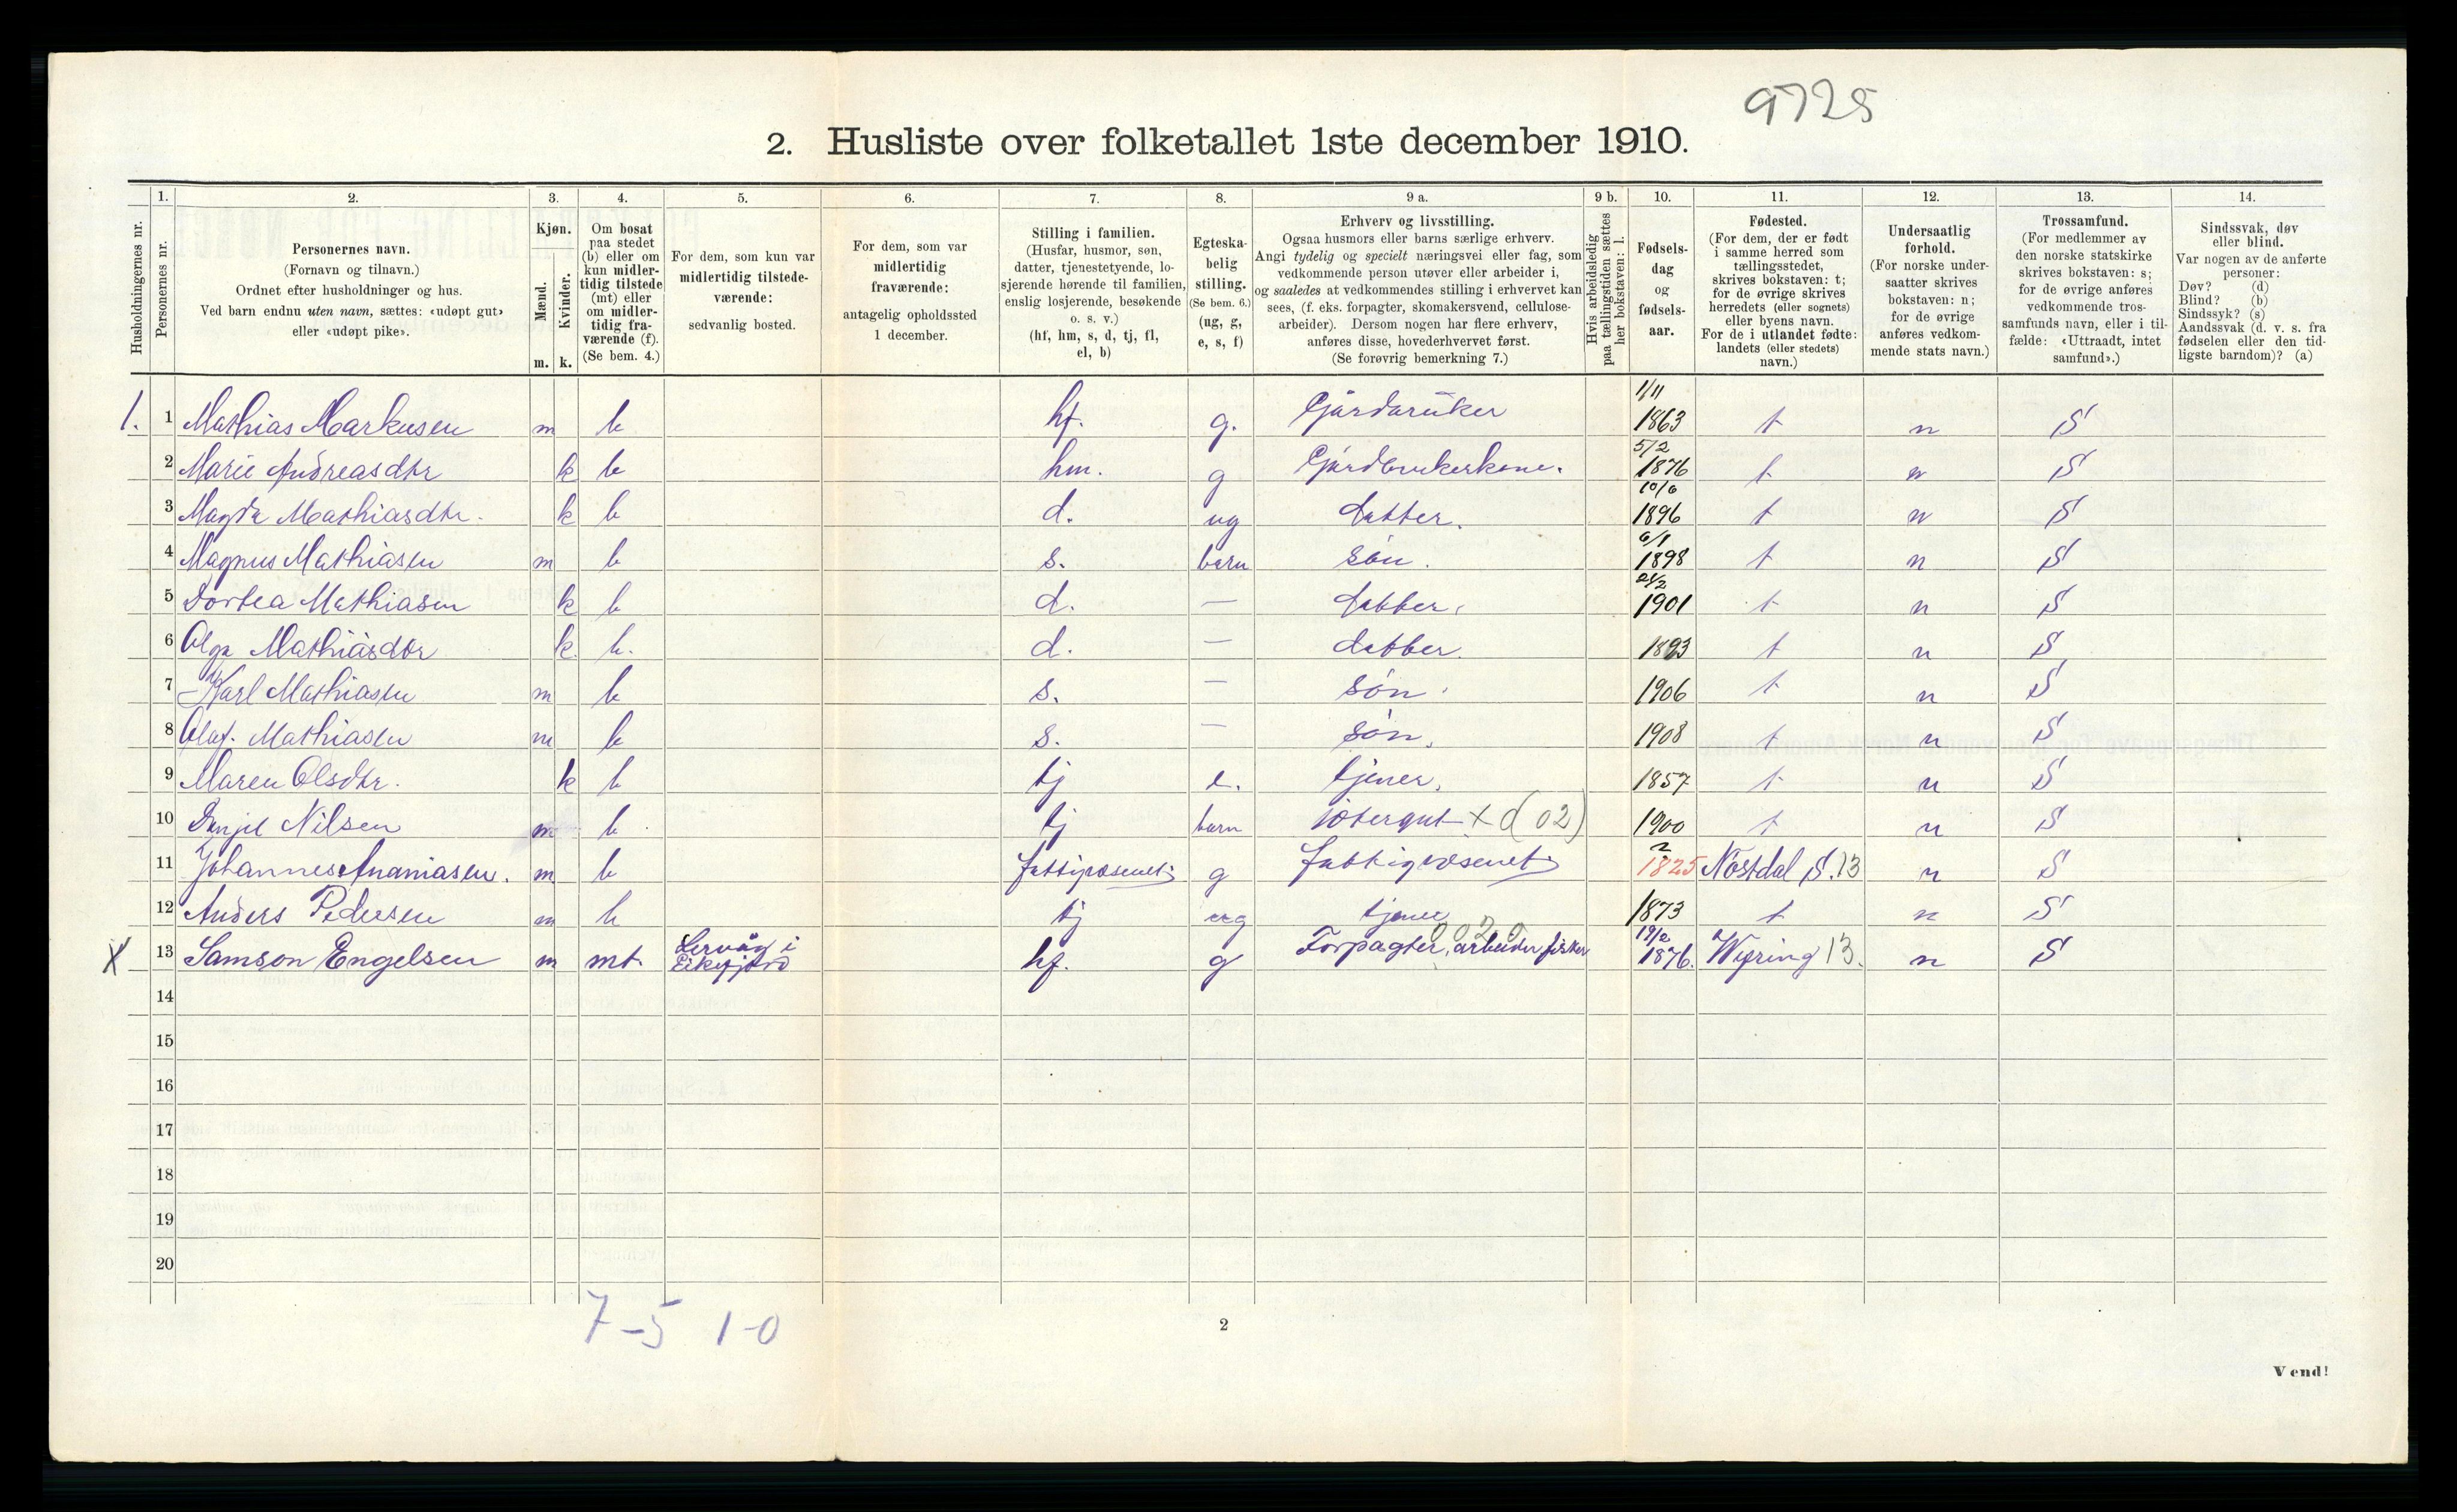 9725
2. Husliste over folketallet 1ste december 1910.
Husholdningernes nr.
1. Personernes nr.
2. Personernes navn.
(Fornavn og tilnavn.)
Ordnet efter husholdninger og hus.
Ved barn endnu uten navn, sættes: «udøpt gut»
eller «udøpt pike».
3. Kjøn.
Mænd. Kvinder.
m. k.
4. Om bosat
paa stedet
(b) eller om
kun midler-
tidig tilstede
(mt) eller
om midler-
tidig fra-
værende (f).
(Se bem. 4.)
5. For dem, som kun var
midlertidig tilstede-
værende:
sedvanlig bosted.
6. For dem, som var
midlertidig
fraværende:
antagelig opholdssted
1 december.
7. Stilling i familien.
(Husfar, husmor, søn,
datter, tjenestetyende, lo-
sjerende hørende til familien,
enslig losjerende, besøkende
o. s. v.)
(hf, hm, s, d, tj, fl,
el, b)
8. Egteska-
belig
stilling.
(Se bem. 6.)
(ug, g,
e, s, f)
9 a. Erhverv og livsstilling.
Ogsaa husmors eller barns særlige erhverv.
Angi tydelig og specielt næringsvei eller fag, som
vedkommende person utøver eller arbeider i,
og saaledes at vedkommendes stilling i erhvervet kan
sees, (f. eks. forpagter, skomakersvend, cellulose-
arbeider). Dersom nogen har flere erhverv,
anføres disse, hovederhvervet først.
(Se forøvrig bemerkning 7.)
9 b. Hvis arbeidsledig
paa tællingstiden sættes
her bokstaven: l.
10. Fødsels-
dag
og
fødsels-
aar.
11. Fødested.
(For dem, der er født
i samme herred som
tællingsstedet,
skrives bokstaven: t;
for de øvrige skrives
herredets (eller sognets)
eller byens navn.
For de i utlandet fødte:
landets (eller stedets)
navn.)
12. Undersaatlig
forhold.
(For norske under-
saatter skrives
bokstaven: n;
for de øvrige
anføres vedkom-
mende stats navn.)
13. Trossamfund.
(For medlemmer av
den norske statskirke
skrives bokstaven: s;
for de øvrige anføres
vedkommende tros-
samfunds navn, eller i til-
fælde: «Uttraadt, intet
samfund».)
14. Sindssvak, døv
eller blind.
Var nogen av de anførte
personer:
Døv? (d)
Blind? (b)
Sindssyk? (s)
Aandssvak (d. v. s. fra
fødselen eller den tid-
ligste barndom)? (a)
1. 1 Mathias Markusen m b hf. g. Gårdbruker 1/11 1863 t n S
2 Marie Andreasdtr k b hm. g Gårdbrukerkone. 5/2 1876 t n S
3 Magda Mathiasdtr. k b d. ug datter. 10/6 1896 t n S
4 Magnus Mathiasen m b s. barn søn. 6/1 1898 t n S
5 Dortea Mathiasen k b d. — datter. 21/2 1901 t n S
6 Olga Mathiasdtr k. b. d. — datter. t n S
7 Karl Mathiasen m b s. — søn. 1906 t n S
8 Olaf. Mathiasen m b s. — søn. 1908 t n S
9 Maren Olsdtr. k b tj e. tjener. 1857 t n S
10 Nilsen m b tj barn + d (02) 1900 t n S
11 Johannes Ananiasen. m b fattigvesenet g fattigvesenet 1825 S. 13 n S
12 Anders Pedersen m b tj ug tjener 1873 t n S
X 13 Samson Engelsen m mt. Lervåg i Eikefjord hf. g Forpagter, arbeider fisker 19/2 1876. 13. n S
14
15
16
17
18
19
20
7-5 1-0
2
Vend!